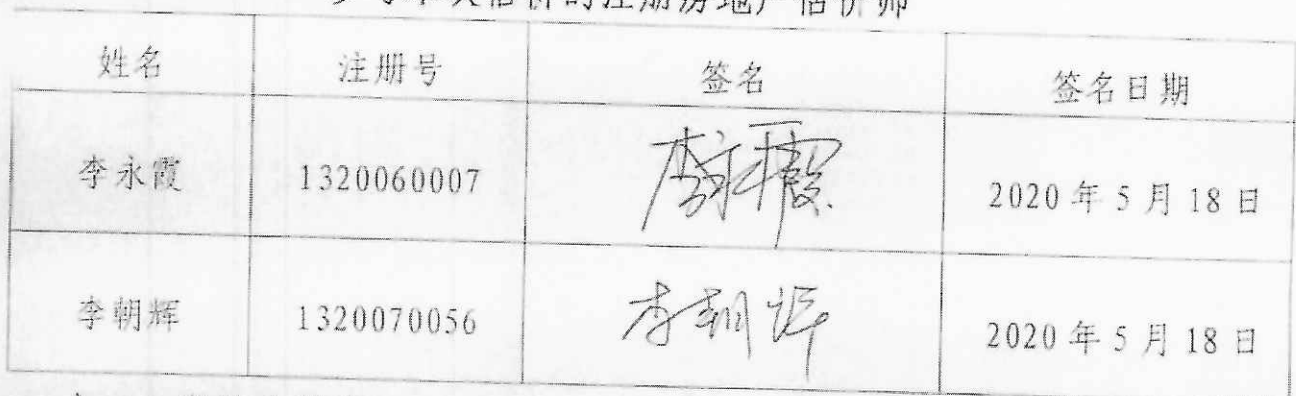 参与本次估价的注册房地产估价师
姓名 注册号 签名 签名日期
李永霞 1320060007 李永霞 2020年5月18日
李朝辉 1320070056 李朝辉 2020年5月18日